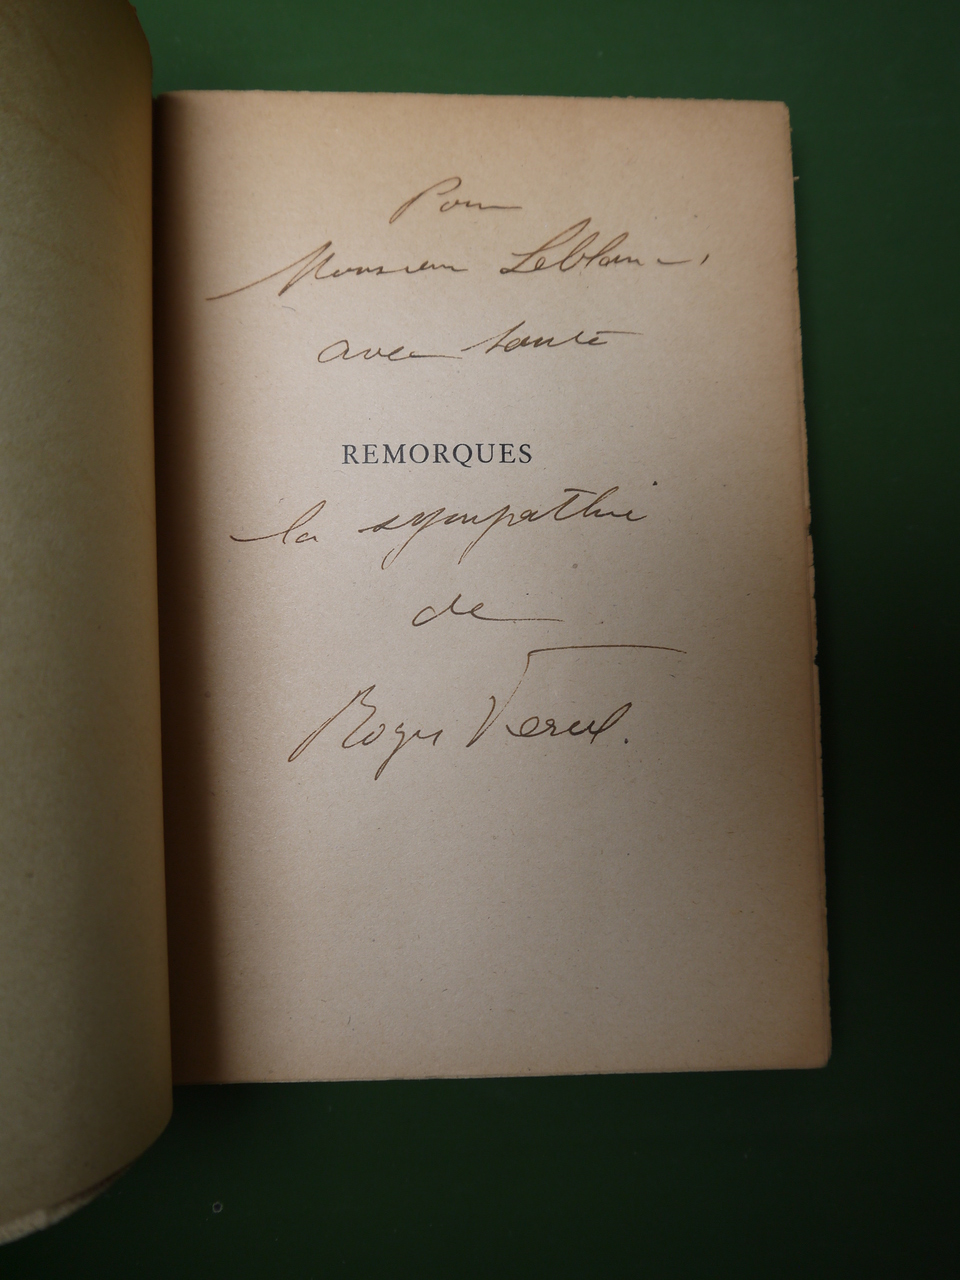 Pour
Monsieur Leblanc,
avec toute
REMORQUES
la sympathie
de
Roger Vercel.